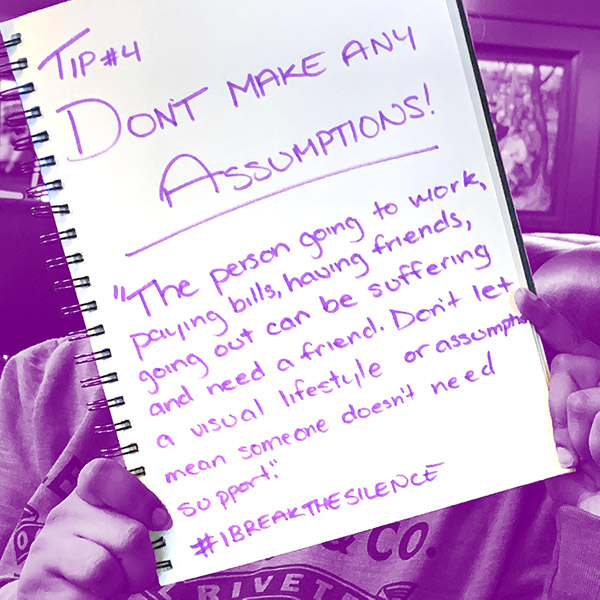 TIP #4
DONT MAKE ANY
ASSUMPTIONS!
"The person going to work,
paying bills, having friends,
going out can be suffering
and need a friend. Don't let
a visual lifestyle or assumption
mean someone doesn't need
support."
#IBREAKTHESILENCE
& CO.
RIVET